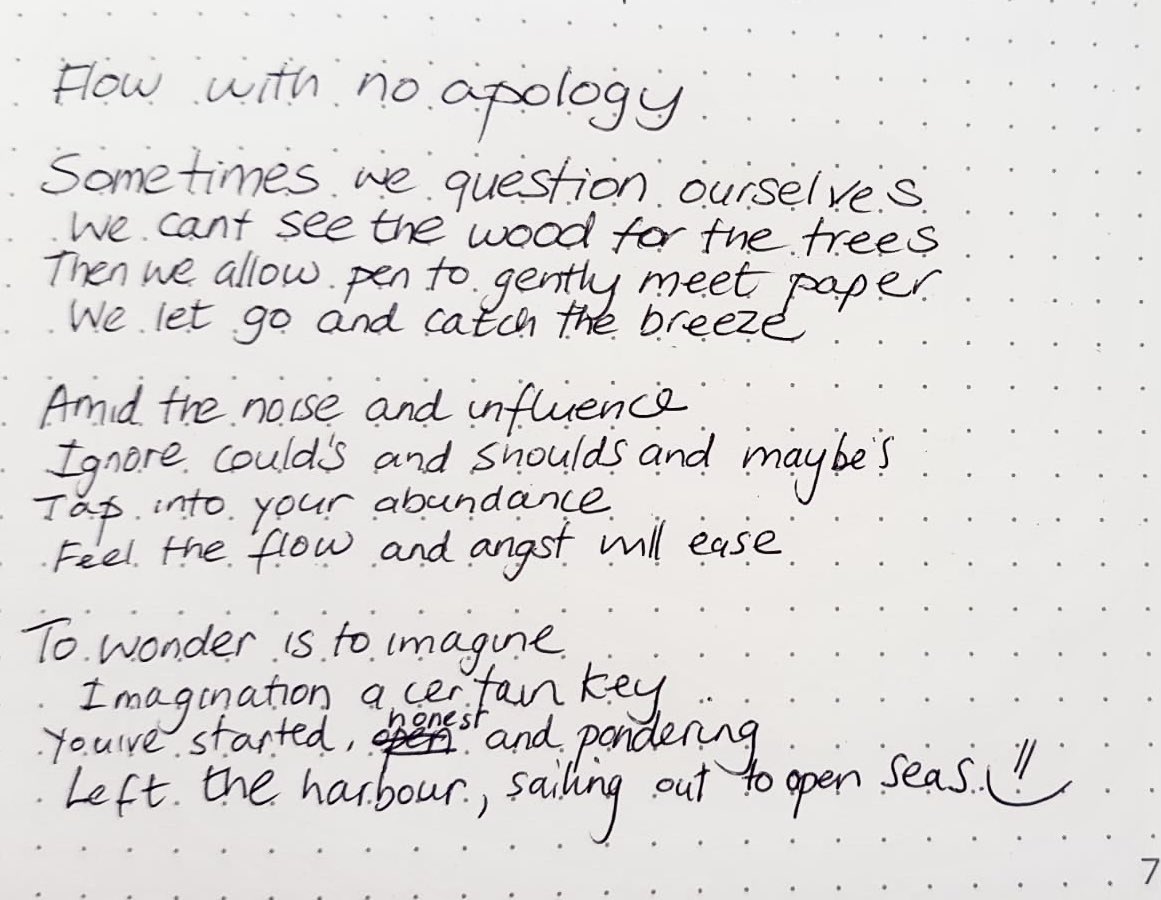 Flow with no apology
Sometimes we question ourselves
We cant see the wood for the trees
Then we allow pen to gently meet paper
We let go and catch the breeze
Amid the noise and influence
Ignore could's and shoulds and maybe's
Tap into your abundance
Feel the flow and angst will ease
To wonder is to imagine
Imagination a certain key
honest
You've started, open and pondering
Left the harbour, sailing out to open seas
7